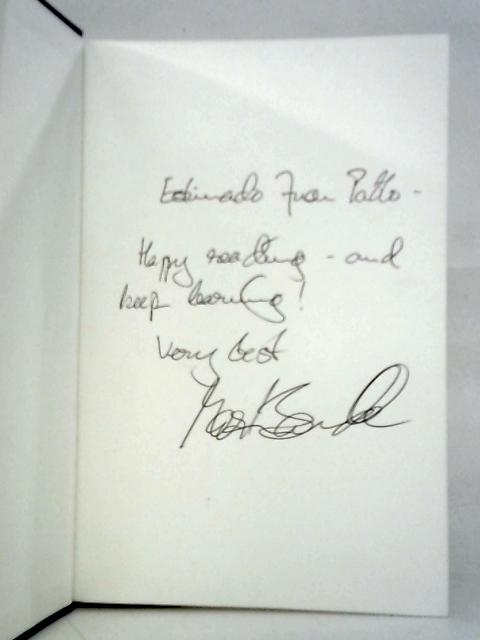 Estimado Juan Pablo -
Happy reading - and
keep learning!
Very best